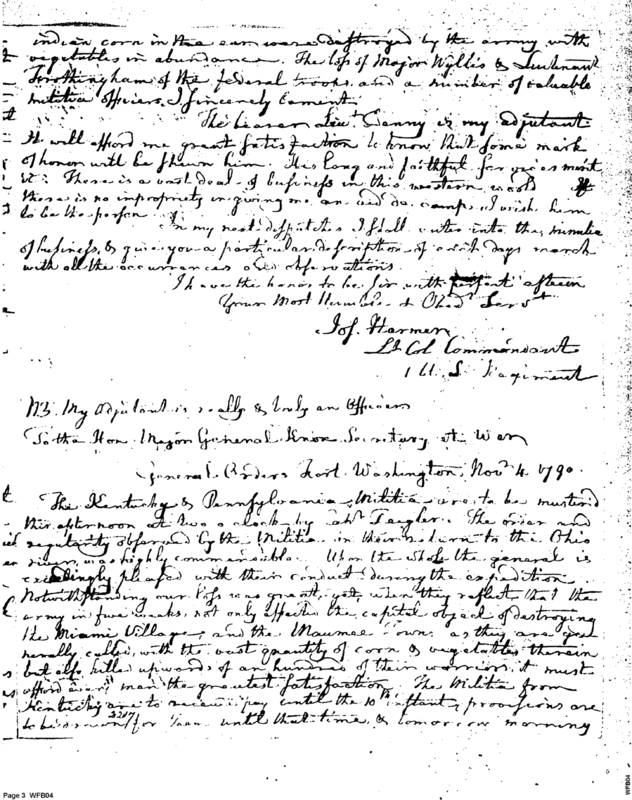 indian corn in the ears were destroyed by the army with
vegetables in abundance. The loss of Major Wyllis & Lieutenant
Frothingham of the federal troops and a number of valuable
militia officers, I sincerely lament.
The bearer Lieut. Denny is my adjutant
It will afford me great satisfaction to know that some mark
of honor will be shewn him. His long and faithful services merit
it: There is a vast deal of business in this western world If
there is no impropriety in giving me an aid de camp, I wish him
to be the person.
In my next dispatches I shall enter into the minutie
of business, & give you a particular description of each days march
with all the occurrences and observations.
I have the honor to be, Sir with perfect esteem
Your Most Humble & Obedt. Servt
Jos. Harmar
Lt Col Commandant
1 U. S. Regiment
NB My adjutant is really & truly an Officer
To the Hon. Major General Knox Secretary at War
General Orders Fort Washington, Novr 4. 1790.
The Kentucky & Pennsylvania Militia are to be mustered
this afternoon at two o clock by The order and
regularity observed by the Militia in their return to the Ohio
river, was highly commendable. Upon the whole the general is
exceedingly pleased with their conduct during the expedition
Notwithstanding our loss was great, yet, when they reflect that the
army in five weeks, not only effected the capital object of destroying
the Miami Village, and the Maumee Towns as they are ge
nerally called, with the vast quantity of corn & vegetables therein
but also killed upwards of an hundred of their warriors it must
afford every man the greatest satisfaction The Militia from
Kentucky are to receive pay until the 10th instant, provisions are
to be drawn for them until that time & tomorrow morning
3217
Page 3 WFB04
WFB04